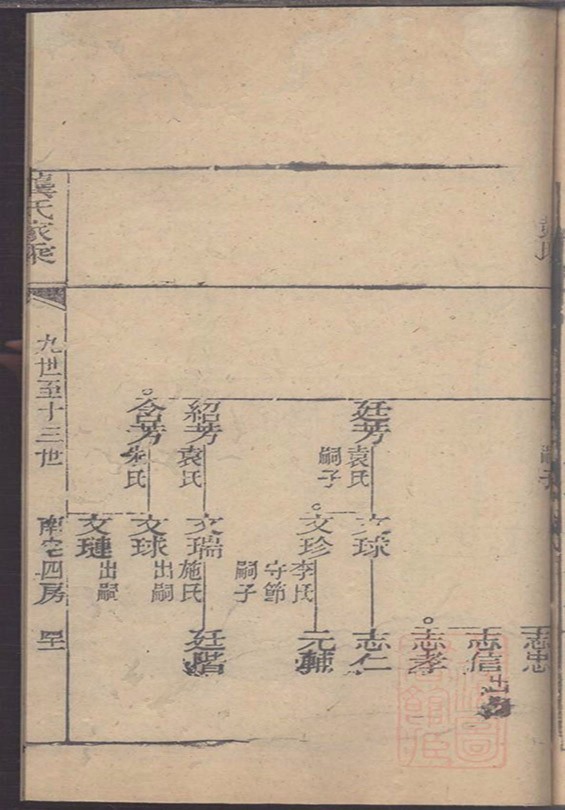 廷芳
袁氏
嗣子
紹芳
袁氏
含芳
朱氏
文球
文珍
李氏
守節
嗣子
文瑞
施氏
文球
出嗣
文璉
出嗣
志忠
志信
出
志孝
志仁
元輔
廷階
龔氏家乘
九世至十三世
南宅四房